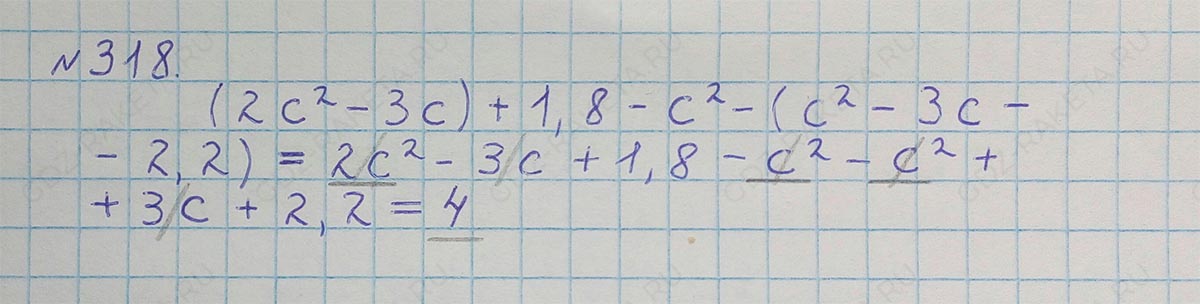 №318.
(2c² - 3c) + 1,8 - c² - (c² - 3c -
- 2,2) = 2c² - 3c + 1,8 - c² - c² +
+ 3c + 2,2 = 4
GDZ-RAKETA.RU